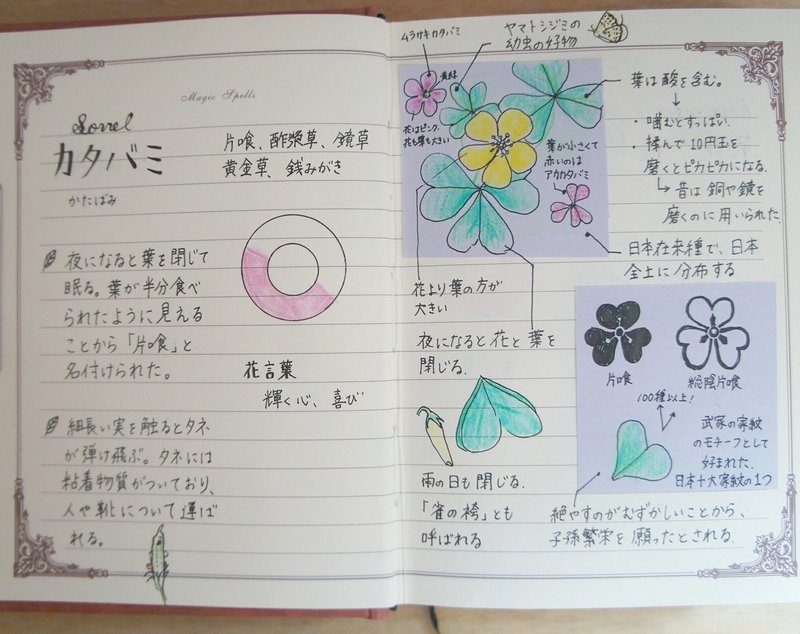 Magic Spells
Sorrel
カタバミ
かたばみ
片喰、酢漿草、鏡草
黄金草、銭みがき
夜になると葉を閉じて
眠る。葉が半分食べ
られたように見える
ことから「片喰」と
名付けられた。
花言葉
輝く心、喜び
細長い実を触るとタネ
が弾け飛ぶ。タネには
粘着物質がついており、
人や靴について運ば
れる。
ムラサキカタバミ
ヤマトシジミの
幼虫の好物
花はピンク。
花も葉も大きい
葉が小さくて
赤いのは
アカカタバミ
葉は酸を含む。
・噛むとすっぱい。
・揉んで10円玉を
磨くとピカピカになる。
昔は銅や鏡を
磨くのに用いられた。
日本在来種で、日本
全土に分布する
花より葉の方が
大きい
夜になると花と葉を
閉じる。
雨の日も閉じる。
「雀の袴」とも
呼ばれる
片喰
総陰片喰
100種以上!
武家の家紋
のモチーフとして
好まれた。
日本十大家紋の1つ
絶やすのがむずかしいことから、
子孫繁栄を願ったとされる